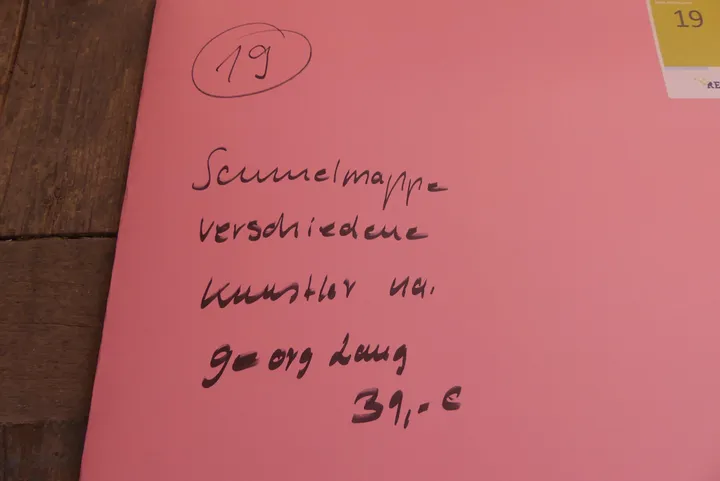 19
19
Sammelmappe
verschiedene
Künstler ua.
georg Lang
39,- €